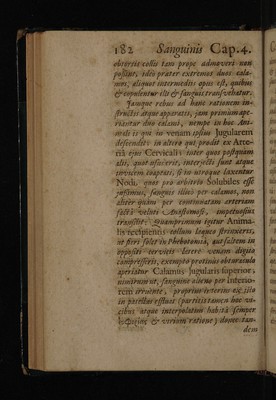 182 Sanguinis Cap. 4.
obtortis collis tam prope admoveri non
possint, ideò præter extremos duos cala-
mos, aliquot intermediis opus est, quibus
& copulentur illi & sanguis transvehatur.
Jamque rebus ad hanc rationem in-
structis atque apparatis, jam primùm ape-
riatur duo calami, nempe in hoc
is qui in venam Jugularem
descendit: in altero qui prodit ex Arte-
riâ Cervicali: inter quos postquam
alii, quot usus erit, interjecti sunt atque
invicem coaptati, si in utroque laxentur
Nodi, quos pro arbitrio Solubiles esse
jussimus, sanguis illicò per calamos, non
aliter quàm per continuatam arteriam
factâ veluti Anastomosi, impetuosius
transilit. Quamprimum igitur Anima-
lis recipientis collum loqueo strinxeris,
ut fieri solet in Phlebotomia, aut saltem in
opposito cervicis latere venam digito
compresseris, exempto protinus obturaculo
aperiatur Calamus Jugularis superior;
nimirum ut, sanguine alieno per inferio-
rem irruente, proprius interim
in patellas effluat (partitis tamen hac vi-
cibus atque interpolatim habitâ semper
& virium ratione) donec tan-
dem